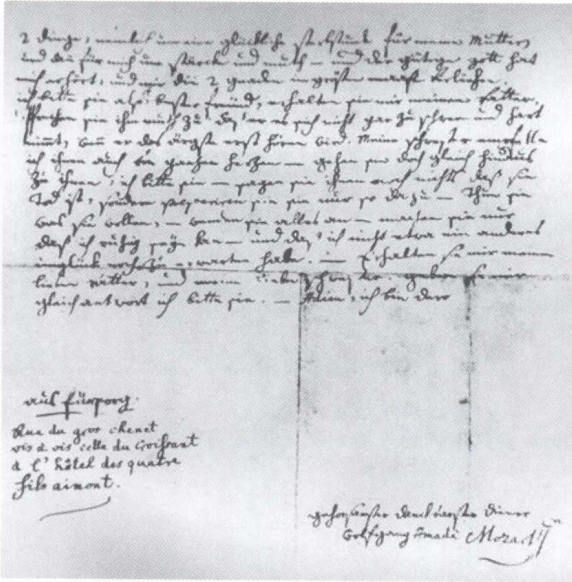 2 dinge, nemlich um eine glückliche sterbstunde für meine Mutter,
und dan für mich um stärcke und muth — und der gütige gott hat
mich erhört, und mir die 2 gnaden im grösten maaße verliehen.
ich bitte sie also, bester freünd, erhalten sie mir meinen vatter,
sprechen sie ihm muth zu daß er es sich nicht gar zu schwer und hart
nimmt, wenn er das ärgste erst hören wird. Meine schwester empfehle
ich ihnen auch von ganzem herzen — gehen sie doch gleich hinaus
zu ihnen, ich bitte sie — sagen sie ihnen noch nichts daß sie
Tod ist, sondern præpariren sie sie nur so dazu — Thun sie
was sie wollen, — wenden sie alles an — machen sie nur
daß ich ruhig seyn kan — und daß ich nicht etwa ein anderes
unglück noch zu erwarten habe. — Erhalten sie mir meinen
lieben vatter, und meine liebe schwester. geben sie mir
gleich antwort ich bitte sie. — Adieu, ich bin dero
aus fürsorg.
Rue du gros chenet
vis à vis celle du Croissant
à l'hôtel des quatre
fils aimont.
gehorsamster danckbarster diener
Wolfgang Amadè Mozart